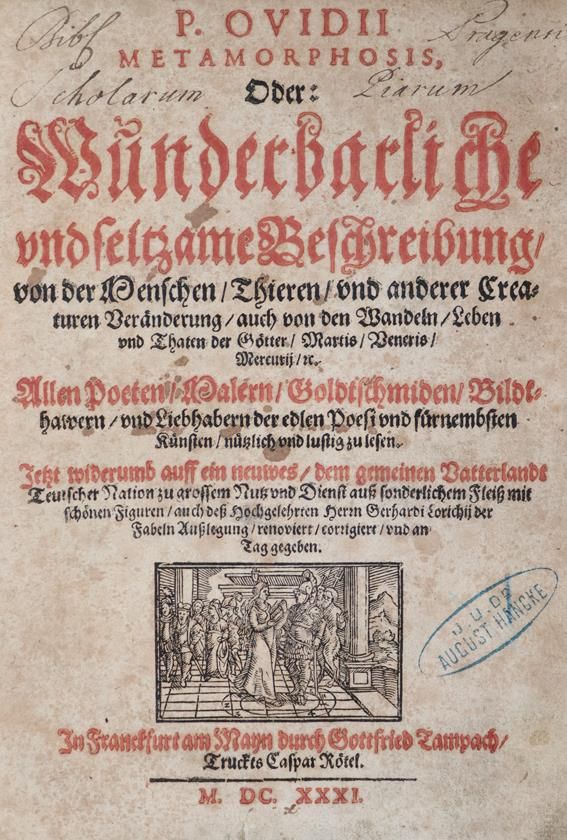 P. OVIDII
Bibl Pragensi
METAMORPHOSIS,
Scholarum Oder: Piarum
Wunderbarliche
vnd seltzame Beschreibung/
von der Menschen / Thieren / vnd anderer Crea-
turen Veränderung / auch von den Wandeln / Leben
vnd Thaten der Götter / Martis / Veneris /
Mercurij / ꝛc.
Allen Poeten / Malern / Goldtschmiden / Bildt-
hawern / vnd Liebhabern der edlen Poesi vnd fürnembsten
Künsten / nützlich vnd lustig zu lesen.
Jetzt widerumb auff ein neuwes / dem gemeinen Vatterlandt
Teutscher Nation zu grossem Nutz vnd Dienst auß sonderlichem Fleiß mit
schönen Figuren / auch deß Hochgelehrten Herrn Gerhardi Lorichij der
Fabeln Außlegung / renoviert / corrigiert / vnd an
Tag gegeben.
J.U.DR
AUGUST HANCKE
In Franckfurt am Mayn durch Gottfried Tampach /
Truckts Caspar Rötel.
M. DC. XXXI.